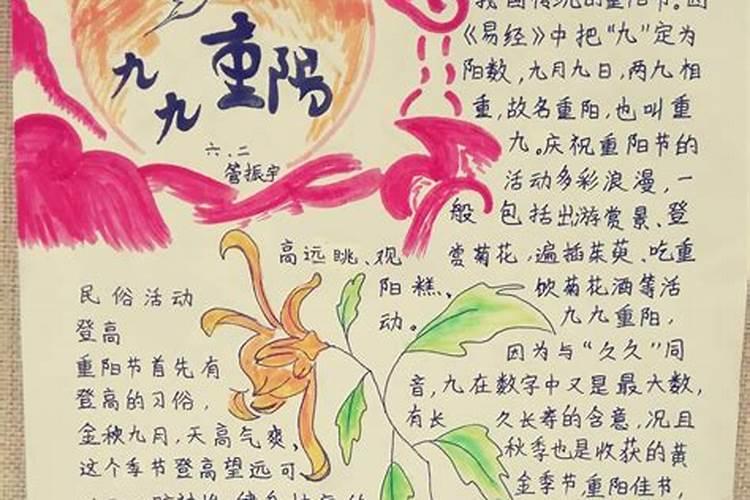 九九重阳
六.二
管振宇
我国传统的重阳节。因
《易经》中把“九”定为
阳数，九月九日，两九相
重，故名重阳，也叫重
九。庆祝重阳节的
活动多彩浪漫，一
般包括出游赏景、登
高远眺、观赏菊花，遍插茱萸、吃重
阳糕、饮菊花酒等活
动。九九重阳，
因为与“久久”同
音，九在数字中又是最大数，
有长久长寿的含意，况且
秋季也是收获的黄
金季节，重阳佳节，
民俗活动
登高
重阳节首先有
登高的习俗，
金秋九月，天高气爽，
这个季节登高望远可